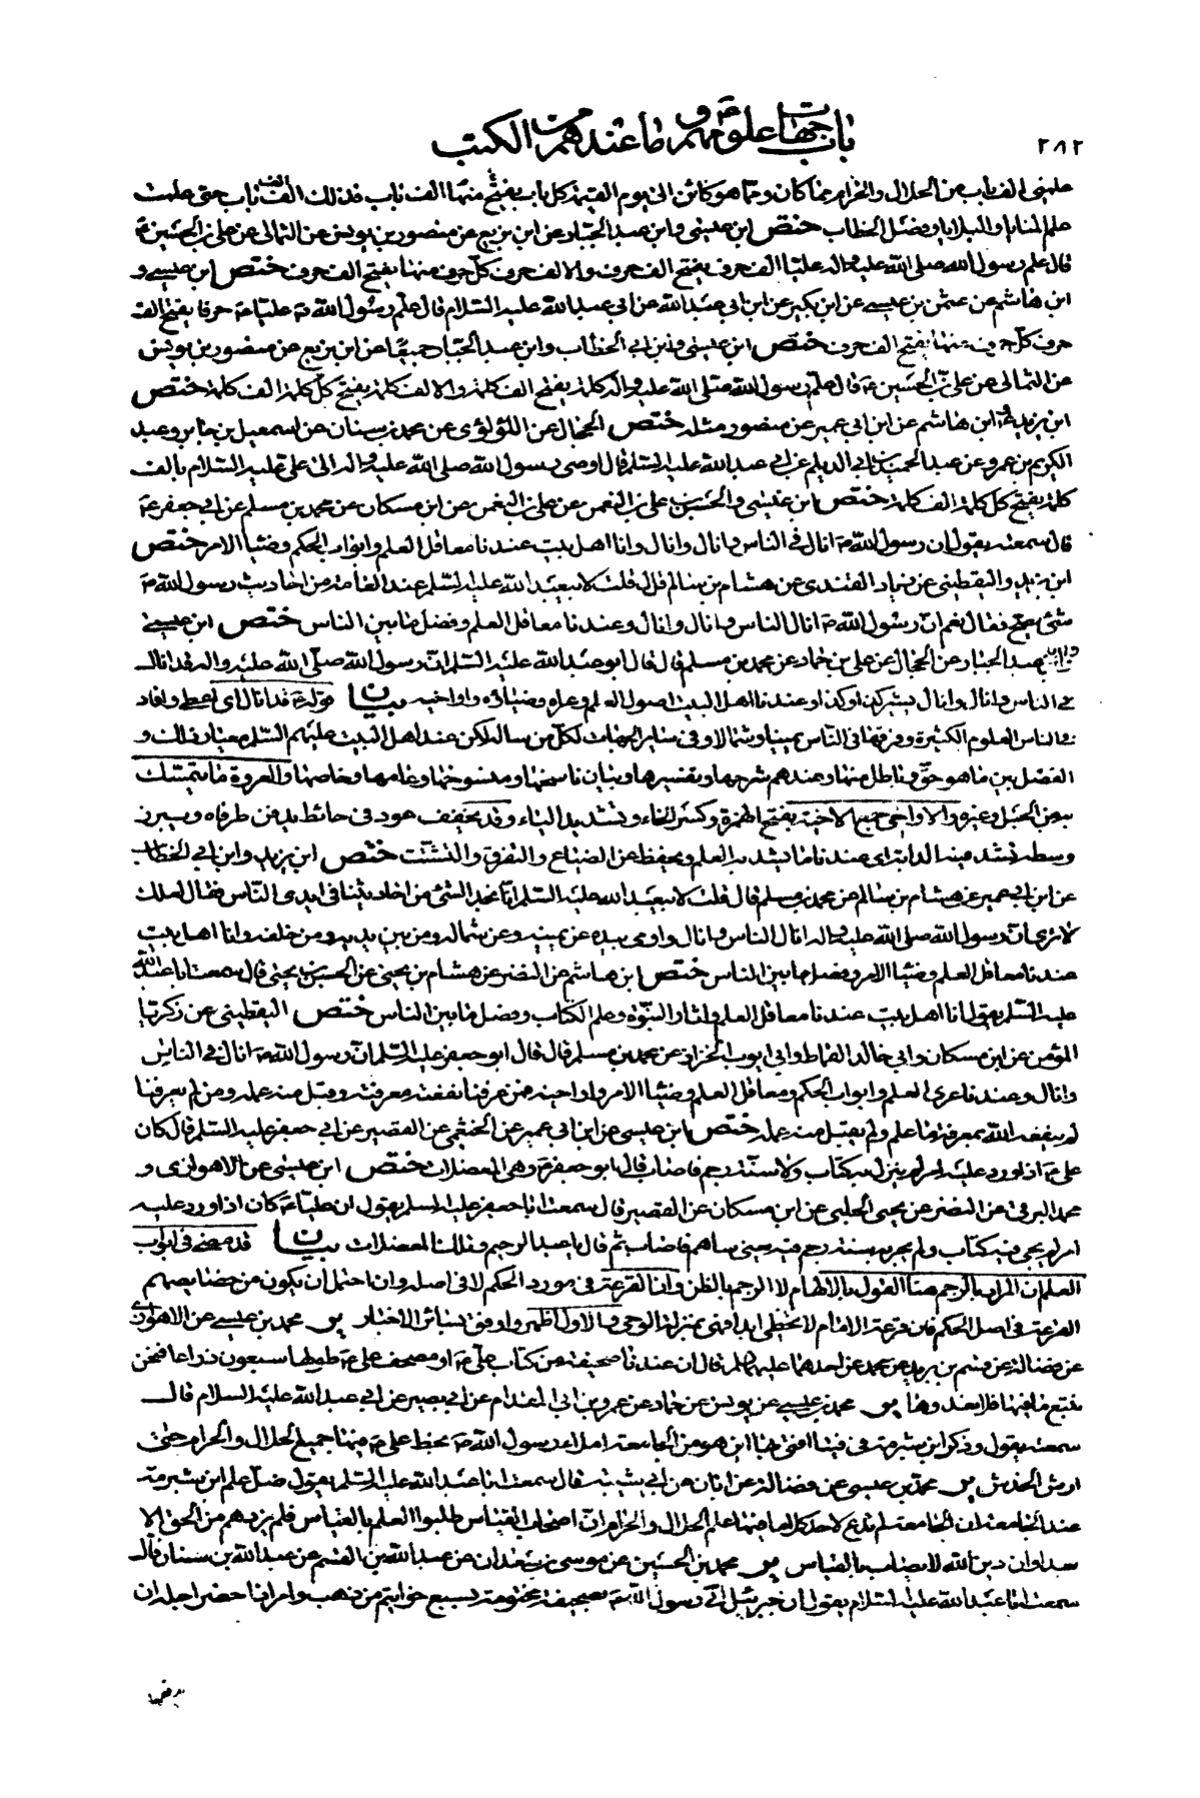 ٢٨٢
باب جهات علومهم وما عندهم من الكتب
علمني الف باب من الحلال والحرام مما كان وما هو كائن الى يوم القيمة كل باب يفتح منها الف باب فذلك الف الف باب حتى علمت
علم المنايا والبلايا وفصل الخطاب ختص ابن عيسى وابن عبد الجبار عن ابن بزيع عن منصور بن يونس عن الثمالي عن علي بن الحسين ع
قال علم رسول الله صلى الله عليه واله عليا الف حرف يفتح الف حرف والالف حرف كل حرف منها يفتح الف حرف ختص ابن عيسى و
ابن هاشم عن عثمن بن عيسى عن ابن بكير عن ابن ابي عبد الله عن ابي عبد الله عليه السلام قال علم رسول الله ص عليا ع حرفا يفتح الف
حرف كل حرف منها يفتح الف حرف ختص ابن عيسى وابن ابي الخطاب وابن عبد الجبار جميعا عن ابن بزيع عن منصور بن يونس
عن الثمالي عن علي بن الحسين ع قال علم رسول الله صلى الله عليه واله كلمة يفتح الف كلمة والالف كلمة يفتح كل كلمة الف كلمة ختص
ابن يزيد وابن هاشم عن ابن ابي عمير عن منصور مثله ختص الحجال عن اللؤلؤي عن محمد بن سنان عن اسمعيل بن جابر وعبد
الكريم بن عمرو عن عبد الحميد بن ابي الديلم عن ابي عبد الله عليه السلم قال اوصى رسول الله صلى الله عليه واله الى علي عليه السلام بالف
كلمة يفتح كل كلمة الف كلمة ختص ابن عيسى والحسن بن علي بن النعمن عن علي بن النعمن عن ابن مسكان عن محمد بن مسلم عن ابي جعفر ع
قال سمعته يقول ان رسول الله ص انال في الناس وانال وانال وانا اهل بيت عندنا معاقل العلم وابواب الحكم وضياء الامر ختص
ابن يزيد واليقطيني عن زياد القندي عن هشام بن سالم قال قلت لابيعبد الله عليه السلم عند العامة من احاديث رسول الله ص
شئ يصح فقال نعم ان رسول الله ص انال الناس وانال وانال وعندنا معاقل العلم وفصل ما بين الناس ختص ابن عيسى
وابن عبد الجبار عن الحجال عن علي بن حماد عن محمد بن مسلم قال قال ابو عبد الله عليه السلم ان رسول الله صلى الله عليه واله قد انال
في الناس وانال وانال يشير كذا وكذا وعندنا اهل البيت اصول العلم وعراه وضياؤه واواخيه بيان قوله ع قد انال اي اعطى وافاد
في الناس العلوم الكثيرة وفرقها في الناس يمينا وشمالا وفي سائر الجهات لكل من سأله لكن عند اهل البيت عليهم السلم معيار ذلك و
الفصل بين ما هو حق وباطل منها وعندهم شرحها وتفسيرها وبيان ناسخها ومنسوخها وعامها وخاصها والعروة ما يتمسك
به من الحبل وغيره والاواخي جمع الاخية بفتح الهمزة وكسر الخاء وتشديد الياء وقد يخفف عود في حائط يدفن طرفاه ويبرز
وسطه تشد فيه الدابة اي عندنا ما يشد به العلم ويحفظ عن الضياع والتفرق والتشتت ختص ابن يزيد وابن ابي الخطاب
عن ابن ابي عمير عن هشام بن سالم عن محمد بن مسلم قال قلت لابيعبد الله عليه السلم انا نجد الشئ من احاديثنا في ايدي الناس فقال لعلك
لا ترى ان رسول الله صلى الله عليه واله انال الناس وانال واومى بيده عن يمينه وعن شماله ومن بين يديه ومن خلفه وانا اهل بيت
عندنا معاقل العلم وضياء الامر وفصل ما بين الناس ختص ابن هاشم عن النضر عن هشام بن يحيى عن الحسين بن يحيى قال سمعت ابا عبد الله
عليه السلم يقول انا اهل بيت عندنا معاقل العلم واثار النبوة وعلم الكتاب وفصل ما بين الناس ختص اليقطيني عن زكريا
المؤمن عن ابن مسكان وابي خالد القماط وابي ايوب الخزاز عن محمد بن مسلم قال قال ابو جعفر عليه السلم ان رسول الله ص انال في الناس
وانال وعندنا عرى العلم وابواب الحكم ومعاقل العلم وضياء الامر واواخيه فمن عرفنا نفعته معرفته وقبل منه عمله ومن لم يعرفنا
لم ينفعه الله بمعرفة ما علم ولم يقبل منه عمله ختص ابن عيسى عن ابن ابي عمير عن الخثعمي عن القصير عن ابي جعفر عليه السلم قال كان
علي ع اذا ورد عليه امر لم ينزل به كتاب ولا سنة رجم فاصاب قال ابو جعفر ع وهي المعضلات ختص ابن عيسى عن الاهوازي و
محمد البرقي عن النضر عن يحيى الحلبي عن ابن مسكان عن القصير قال سمعت ابا جعفر عليه السلم يقول ان عليا ع كان اذا ورد عليه
امر لم يجئ فيه كتاب ولم يجر به سنة رجم فيه يعني ساهم فاصاب ثم قال يا عبد الرحيم وتلك المعضلات بيان قد مضى في ابواب
العلم ان المراد بالرجم هنا القول بالالهام لا الرجم بالظن وانا القرعة في مورد الحكم لا في اصله وان احتمل ان يكون من خصايصهم
القرعة في اصل الحكم فان قرعة الامام لا تخطي ابدا فهي بمنزلة الوحي والاول اظهر واوفق بسائر الاخبار ير محمد بن عيسى عن الاهوازي
عن فضالة عن قسم بن بريد عن محمد عن احدهما عليهما السلم قال ان عندنا صحيفة من كتاب علي ع او مصحف علي ع طولها سبعون ذراعا فنحن
نتبع ما فيها فلا نعدوها ير محمد بن عيسى عن يونس عن حماد عن عمرو بن ابي المقدام عن ابي بصير عن ابي عبد الله عليه السلام قال
سمعته يقول وذكر ابن شبرمة في فتيا افتى بها اين هو من الجامعة املاء رسول الله ص بخط علي ع فيها جميع الحلال والحرام حتى
ارش الخدش ير محمد بن عيسى عن فضالة عن ابان عن ابي شيبة قال سمعت ابا عبد الله عليه السلم يقول ضل علم ابن شبرمة
عند الجامعة ان الجامعة لم تدع لاحد كلاما فيها علم الحلال والحرام ان اصحاب القياس طلبوا العلم بالقياس فلم يزدهم من الحق الا
بعدا وان دين الله لا يصاب بالقياس ير محمد بن الحسين عن موسى بن سعدان عن عبد الله بن القسم عن عبد الله بن سنان قال
سمعت ابا عبد الله عليه السلام يقول ان جبرئيل اتى رسول الله ص بصحيفة مختومة بسبع خواتيم من ذهب وامر اذا حضر اجله ان